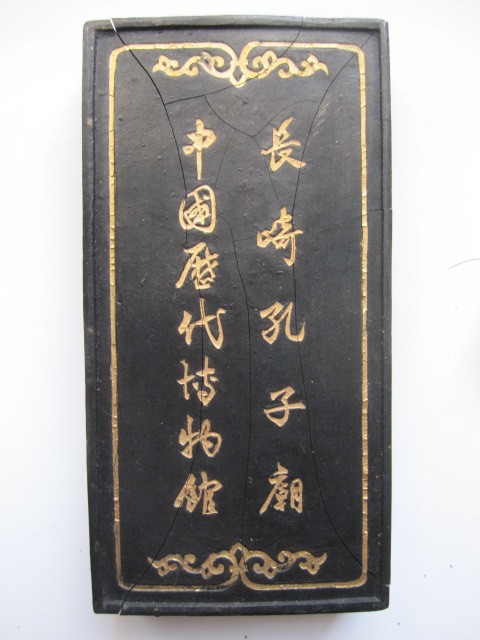 長崎孔子廟
中國歷代博物館